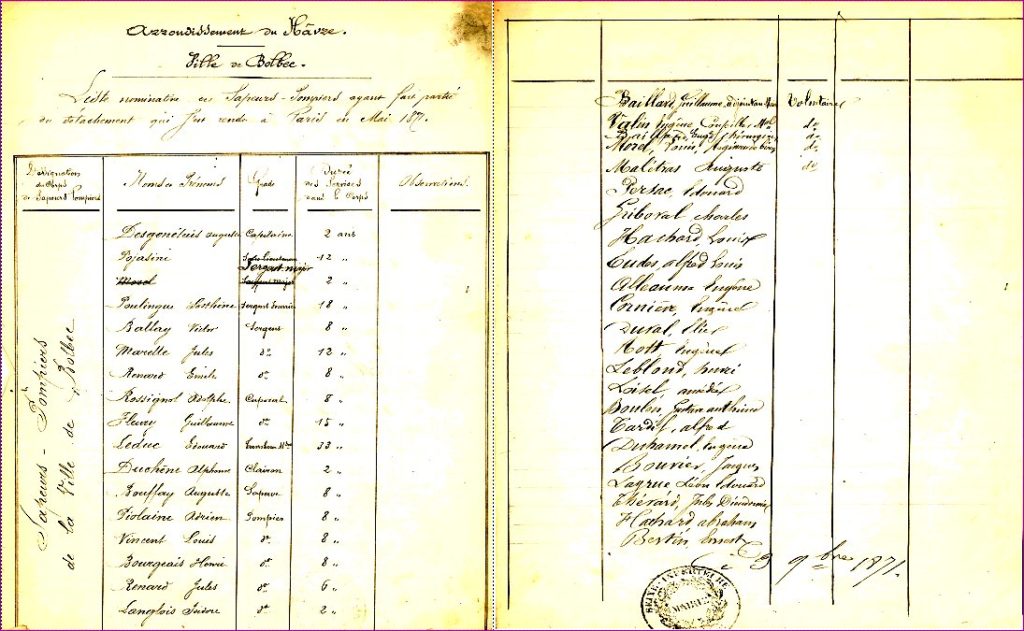 Arrondissement du Hâvre.
Ville de Bolbec.
Liste nominative des Sapeurs-Pompiers ayant fait partie
du détachement qui s'est rendu à Paris en Mai 1871.
Désignation du Corps de Sapeurs Pompiers
Noms et Prénoms
Grade
Durée des Services dans le Corps
Observations.
Sapeurs-Pompiers
de la Ville de Bolbec
Desgenétais Auguste Capitaine 2 ans
Pojasini Sous-Lieutenant 12 "
Morel Sergent major 2 "
Sergent major
Poulingue Sergent Fourrier 18 "
Ballay Victor Sergent 8 "
Marette Jules do 12 "
Renard Emile do 8 "
Rossignol Adolphe Caporal 8 "
Fleury Guillaume do 15 "
Leduc Edouard 33 "
Duchêne Alphonse Clairon 2 "
Bouffay Auguste Sapeur 8 "
Piolaine Adrien Pompier 8 "
Vincent Louis do 8 "
Bourgeais Henri do 8 "
Renard Jules do 6 "
Langlois Isidore do 2 "
Baillard, Guillaume, Volontaire
Valin Eugène, do
do
Morel, Louis, do
Malétras Auguste do
Persac, Edouard
Griboval, Charles
Hachard, Louis
Eudes, alfred Louis
Alleaume Eugène
Cornière, Eugène
Duval, Elie
Mott Eugène
Leblond, henri
Loisel, amédée
Boulen,
Tardif, alfred
Duhamel, Eugène
Bouvier, Jacques
Lagrue Léon Edouard
Thérard, Jules
Hachard abraham
Bertin, Ernest
Ce 3 9bre 1871.
SEINE-INFERIEURE